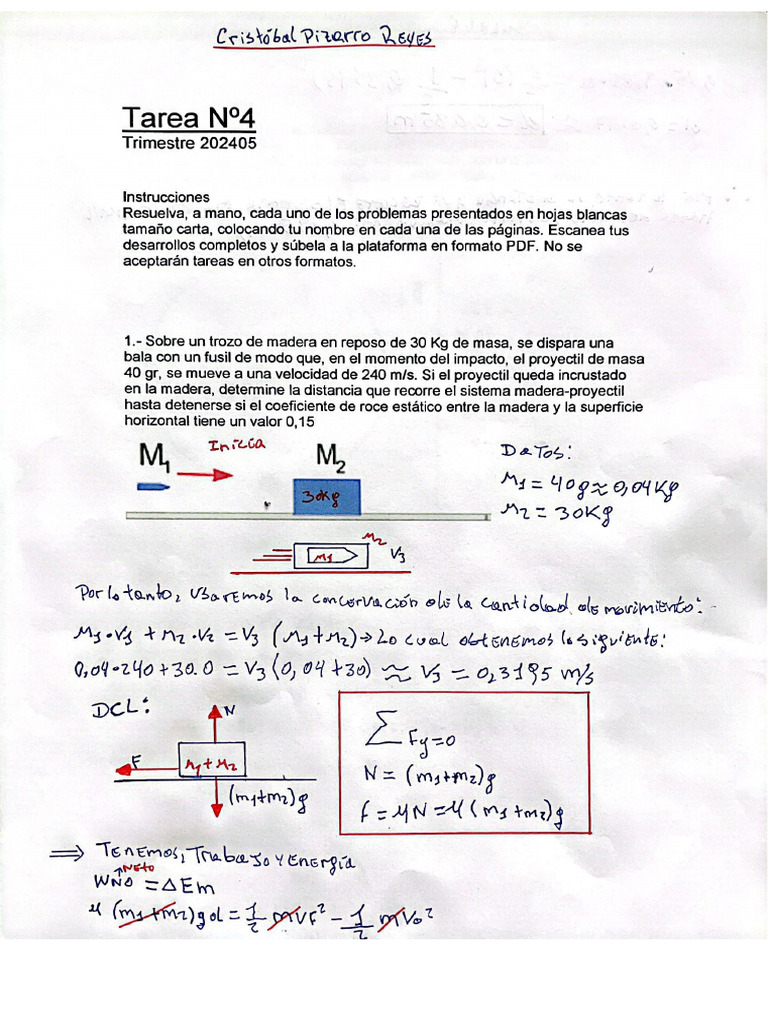 Cristóbal Pizarro Reyes
Tarea Nº4
Trimestre 202405
Instrucciones
Resuelva, a mano, cada uno de los problemas presentados en hojas blancas
tamaño carta, colocando tu nombre en cada una de las páginas. Escanea tus
desarrollos completos y súbela a la plataforma en formato PDF. No se
aceptarán tareas en otros formatos.
1.- Sobre un trozo de madera en reposo de 30 Kg de masa, se dispara una
bala con un fusil de modo que, en el momento del impacto, el proyectil de masa
40 gr, se mueve a una velocidad de 240 m/s. Si el proyectil queda incrustado
en la madera, determine la distancia que recorre el sistema madera-proyectil
hasta detenerse si el coeficiente de roce estático entre la madera y la superficie
horizontal tiene un valor 0,15
M₁ Inicia M₂
30kg
Datos:
M₁ = 40g ≈ 0,04Kg
M₂ = 30Kg
M₁ M₂ V₃
Por lo tanto, usaremos la concervación de la cantidad de movimiento:-
M₁·V₁ + M₂·V₂ = V₃ (M₁+M₂) → Lo cual obtenemos lo siguiente:
0,04·240+30.0 = V₃(0,04+30) ≈ V₃ = 0,3195 m/s
DCL:
N
F
M₁+M₂
(m₁+m₂)g
∑ Fy=0
N = (m₁+m₂)g
f = μN = μ(m₁+m₂)g
⇒ Tenemos, Trabajo y energía
Neto
= ΔEm
μ (m₁+m₂)gd = 1/2 mVF² - 1/2 mVo²